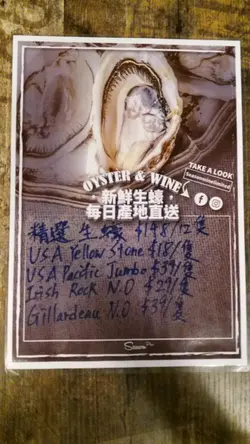 OYSTER & WINE
新鮮生蠔
每日產地直送
TAKE A LOOK
精選 生蠔 $198/12隻
USA Yellow Stone $18/隻
USA Pacific Jumbo $39/隻
Irish Rock N.O $29/隻
Gillardeau N.O $39/隻